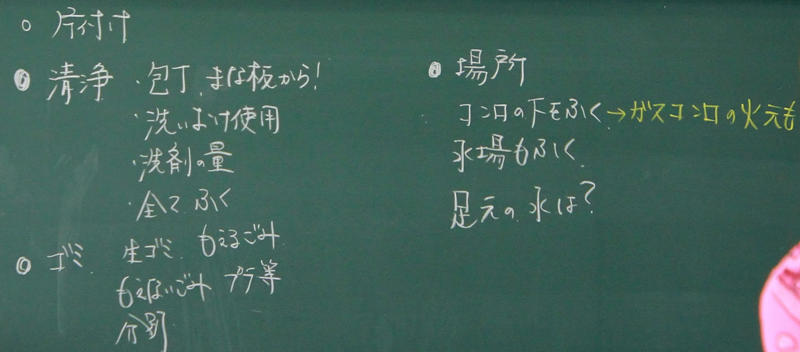 ○ 片付け
◎ 清浄 ・包丁、まな板から!
・洗いおけ使用
・洗剤の量
・全て ふく
◎ ゴミ 生ゴミ もえるごみ
もえないごみ プラ等
分別
◎ 場所
コンロの下をふく→ガスコンロの火元も
水場もふく
足元の水は?